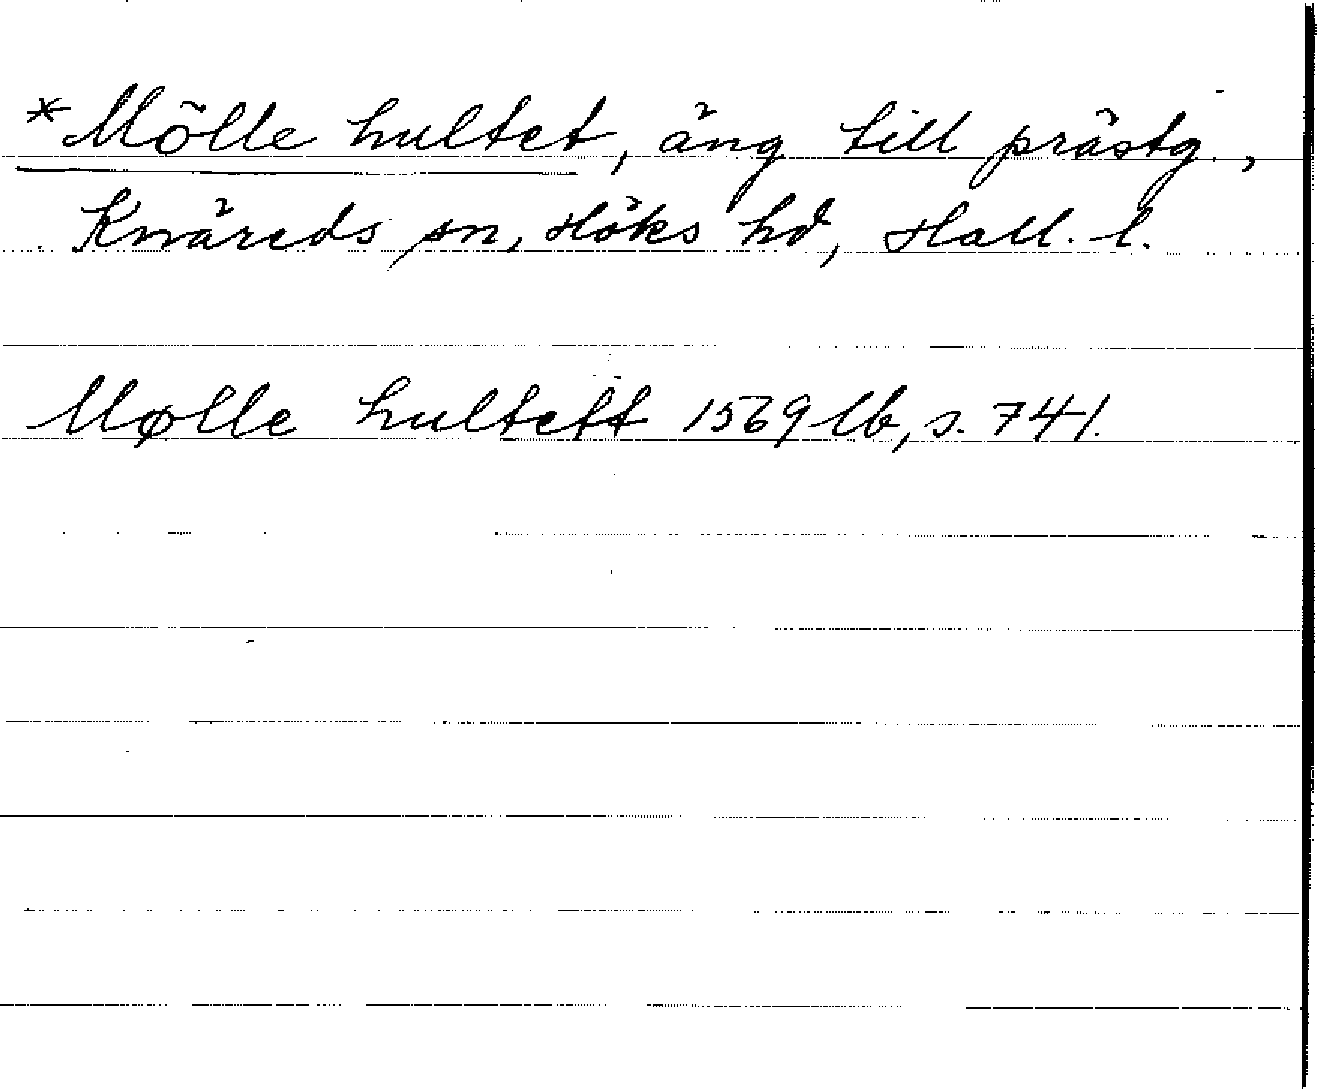 *Mölle hultet, äng till prästg.,
Knäreds sn, Höks hd, Hall. l.
Mølle hultett 1569 lb, s. 741.